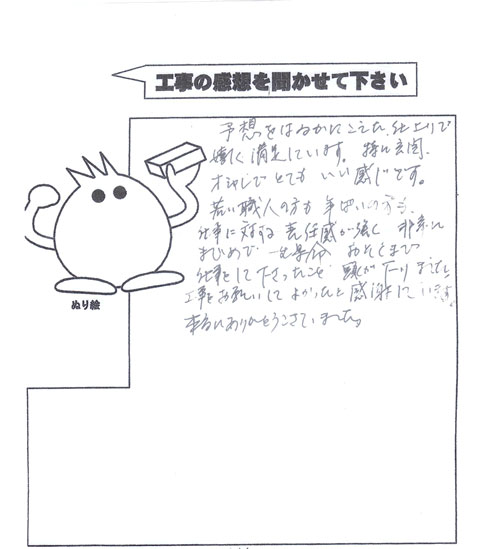 工事の感想を聞かせて下さい
予想をはるかにこえた仕上りで
嬉しく満足しています。特に玄関、
オシャレでとてもいい感じです。
若い職人の方も年配の方も、
仕事に対する責任感が強く 非常に
まじめで 一生懸命 おそくまで
仕事をして下さったこと 頭が下りました。
工事をお願いしてよかったと感謝しています。
本当にありがとうございました。
ぬり絵